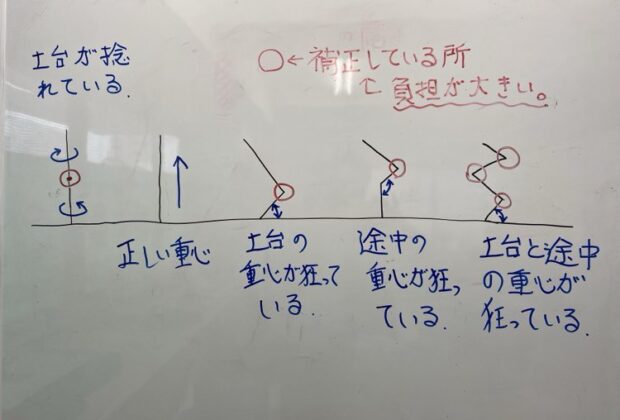 土台が捻
れている.
○←補正している所
↑負担が大きい。
正しい重心
土台の
重心が狂って
いる.
途中の
重心が狂っ
ている.
土台と途中
の重心が
狂っている.